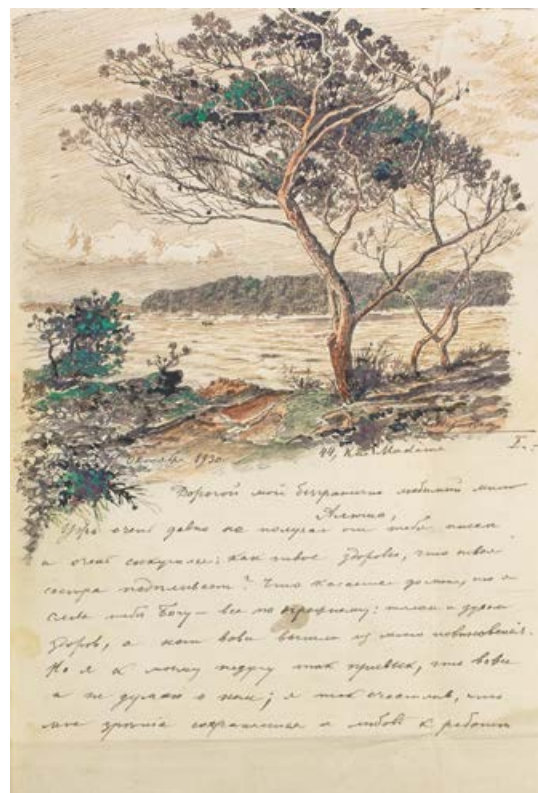 Октября 1930. 44, Rue Madame I.
Дорогой мой безгранично любимый мило
Алюша,
Ужъ очень давно не получал от тебя писем
и очень соскучился: как твое здоровье, что твоя
сестра поделывает? Что касается до меня, то я
слава тебе Богу — все по прежнему: телом и духом
здоров, а ноги вовсе вышли из моего повиновенія.
Но я к моему недугу так привык, что вовсе
и не думаю о нем; я так счастлив, что
мое зрѣніе сохранилось и любовь к работе